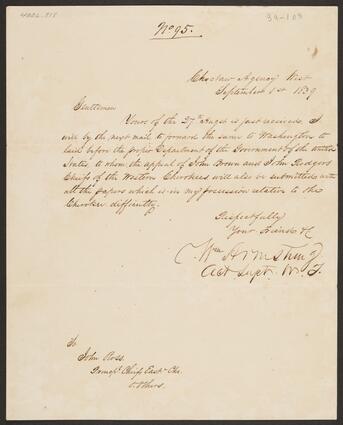 4026.818
39-103
No 95.
Choctaw Agency West
September 1st 1839
Gentlemen
Yours of the 27th Augst is just received. I
will by the next mail to forward the same to Washington to
laid before the proper Department of the Government of the United
States, to whom the appeal of John Brown and John Rodgers
Chiefs of the Western Cherokees will also be submitted with
all the papers which is in my possession relative to the
Cherokee difficulty
Respectfully
Your Friend &c
Wm Armstrong
Act Supt. W. T.
To
John Ross
Principl. Chief East. Che.
& Others.